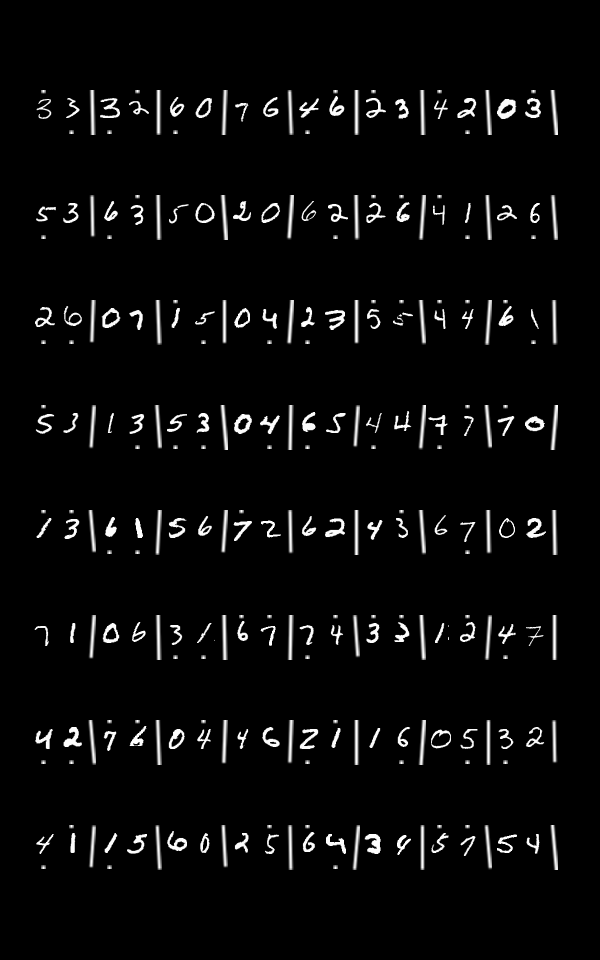 3 3 | 3 2 | 6 0 | 7 6 | 4 6 | 2 3 | 4 2 | 0 3 |
5 3 | 6 3 | 5 0 | 2 0 | 6 2 | 2 6 | 4 1 | 2 6 |
2 6 | 0 7 | 1 5 | 0 4 | 2 3 | 5 5 | 4 4 | 6 1 |
5 3 | 1 3 | 5 3 | 0 4 | 6 5 | 4 4 | 7 7 | 7 0 |
1 3 | 6 1 | 5 6 | 7 2 | 6 2 | 4 3 | 6 7 | 0 2 |
7 1 | 0 6 | 3 1 | 6 7 | 7 4 | 3 3 | 1 2 | 4 7 |
4 2 | 7 6 | 0 4 | 4 6 | 2 1 | 1 6 | 0 5 | 3 2 |
4 1 | 1 5 | 6 0 | 2 5 | 6 4 | 3 4 | 5 7 | 5 4 |